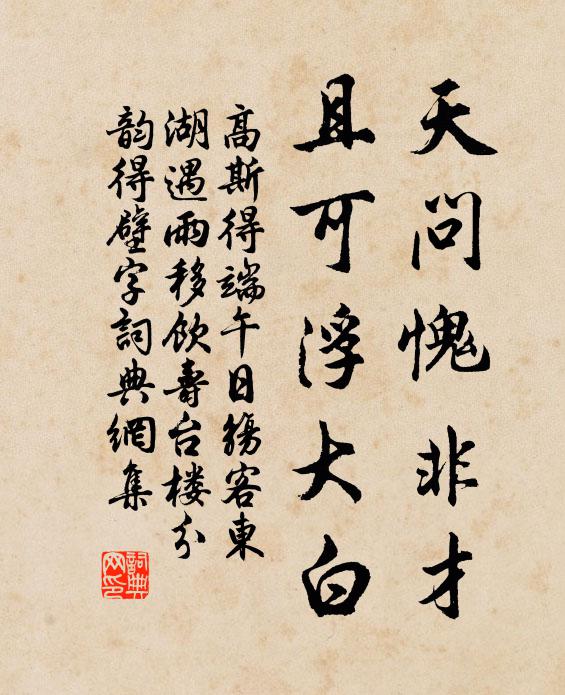 天問愧非才
且可浮大白
高斯得端午日觴客東
湖遇雨移飲壽台楼分
韵得壁字詞典網集
詞典
网印